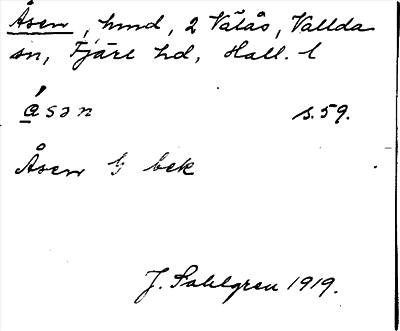 Åsen, hmd, 2 Välås, Vallda
sn, Fjäre hd, Hall. l
åsən s. 59.
Åsen bek
J. Sahlgren 1919.